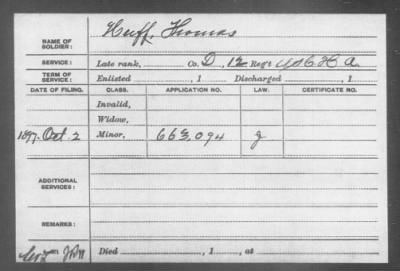 NAME OF SOLDIER: Huff, Thomas
SERVICE: Late rank, Co. D, 12 Reg't U.S.C.H.A.
TERM OF SERVICE: Enlisted , 1 Discharged , 1
DATE OF FILING. CLASS. APPLICATION NO. LAW. CERTIFICATE NO.
Invalid,
Widow,
1897, Oct. 2 Minor, 663,094 g
ADDITIONAL SERVICES:
REMARKS:
Died , 1 , at